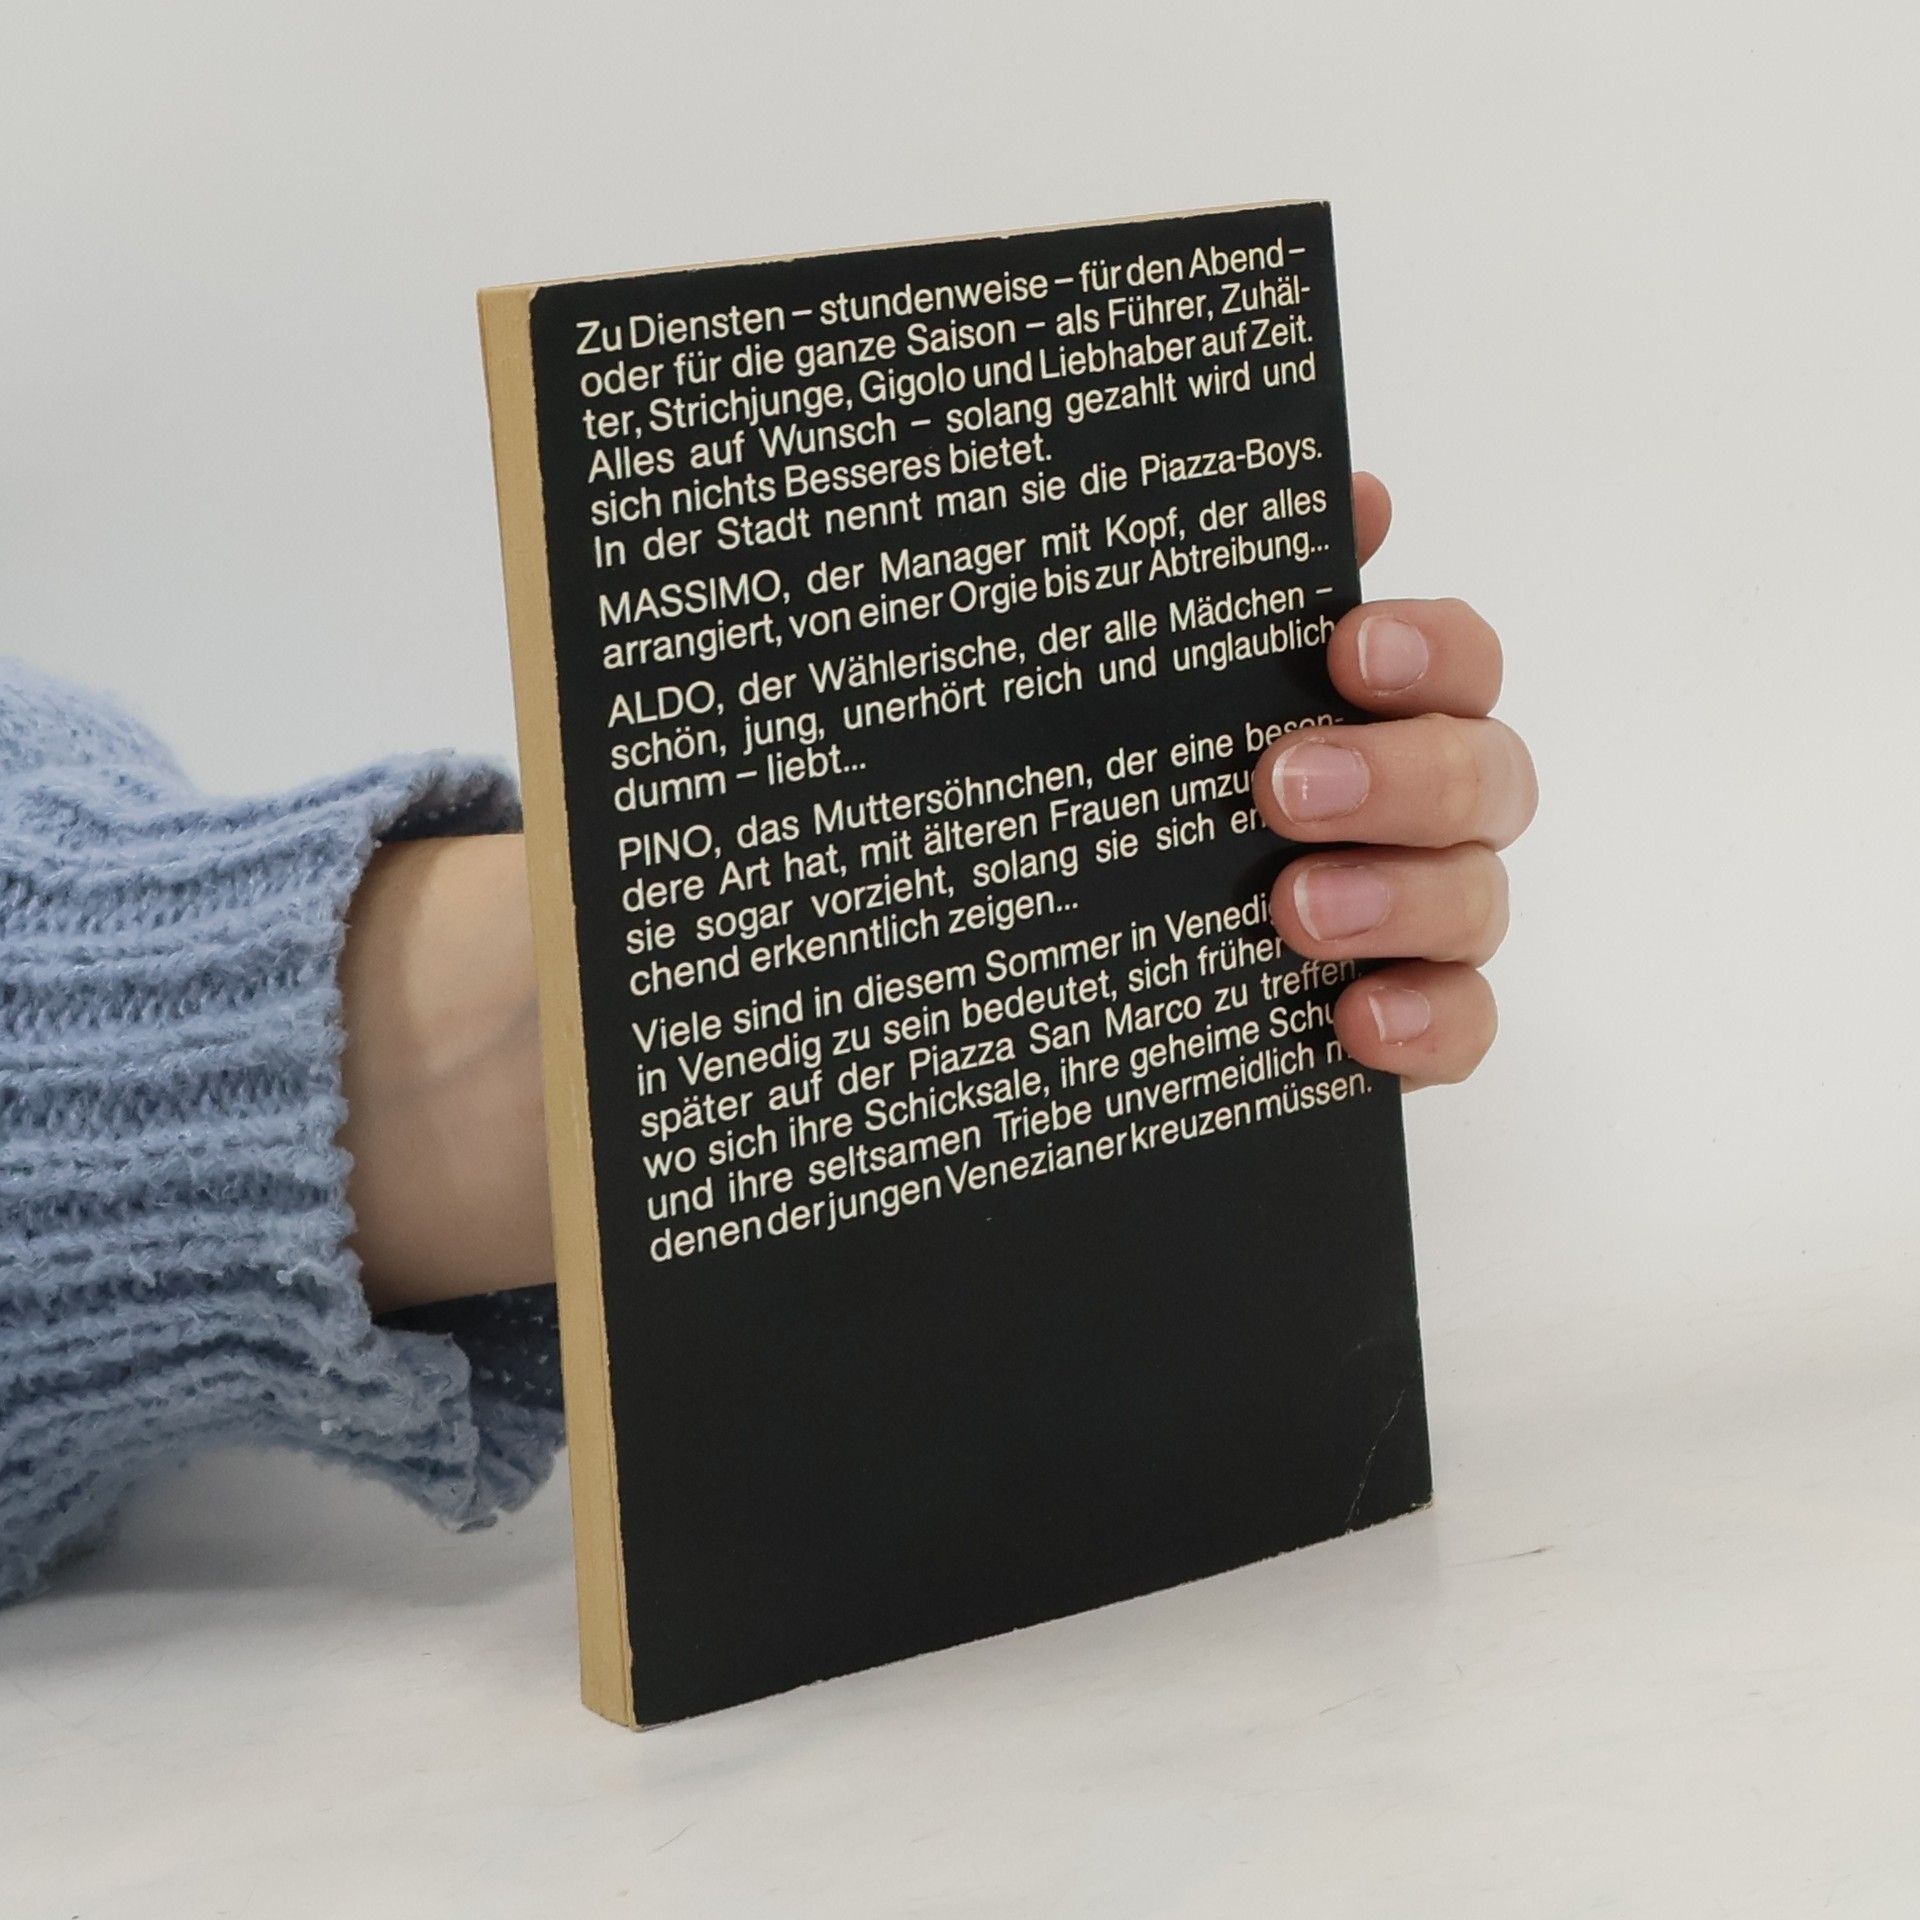 Zu Diensten – stundenweise – für den Abend –
oder für die ganze Saison – als Führer, Zuhäl-
ter, Strichjunge, Gigolo und Liebhaber auf Zeit.
Alles auf Wunsch – solang gezahlt wird und
sich nichts Besseres bietet.
In der Stadt nennt man sie die Piazza-Boys.
MASSIMO, der Manager mit Kopf, der alles
arrangiert, von einer Orgie bis zur Abtreibung...
ALDO, der Wählerische, der alle Mädchen –
schön, jung, unerhört reich und unglaublich
dumm – liebt...
PINO, das Muttersöhnchen, der eine beson-
dere Art hat, mit älteren Frauen
sie sogar vorzieht, solang sie sich
chend erkenntlich zeigen...
Viele sind in diesem Sommer in Venedig
in Venedig zu sein bedeutet, sich früher
später auf der Piazza San Marco zu treffen,
wo sich ihre Schicksale, ihre geheime
und ihre seltsamen Triebe unvermeidlich
denen der jungen Venezianer kreuzen müssen.